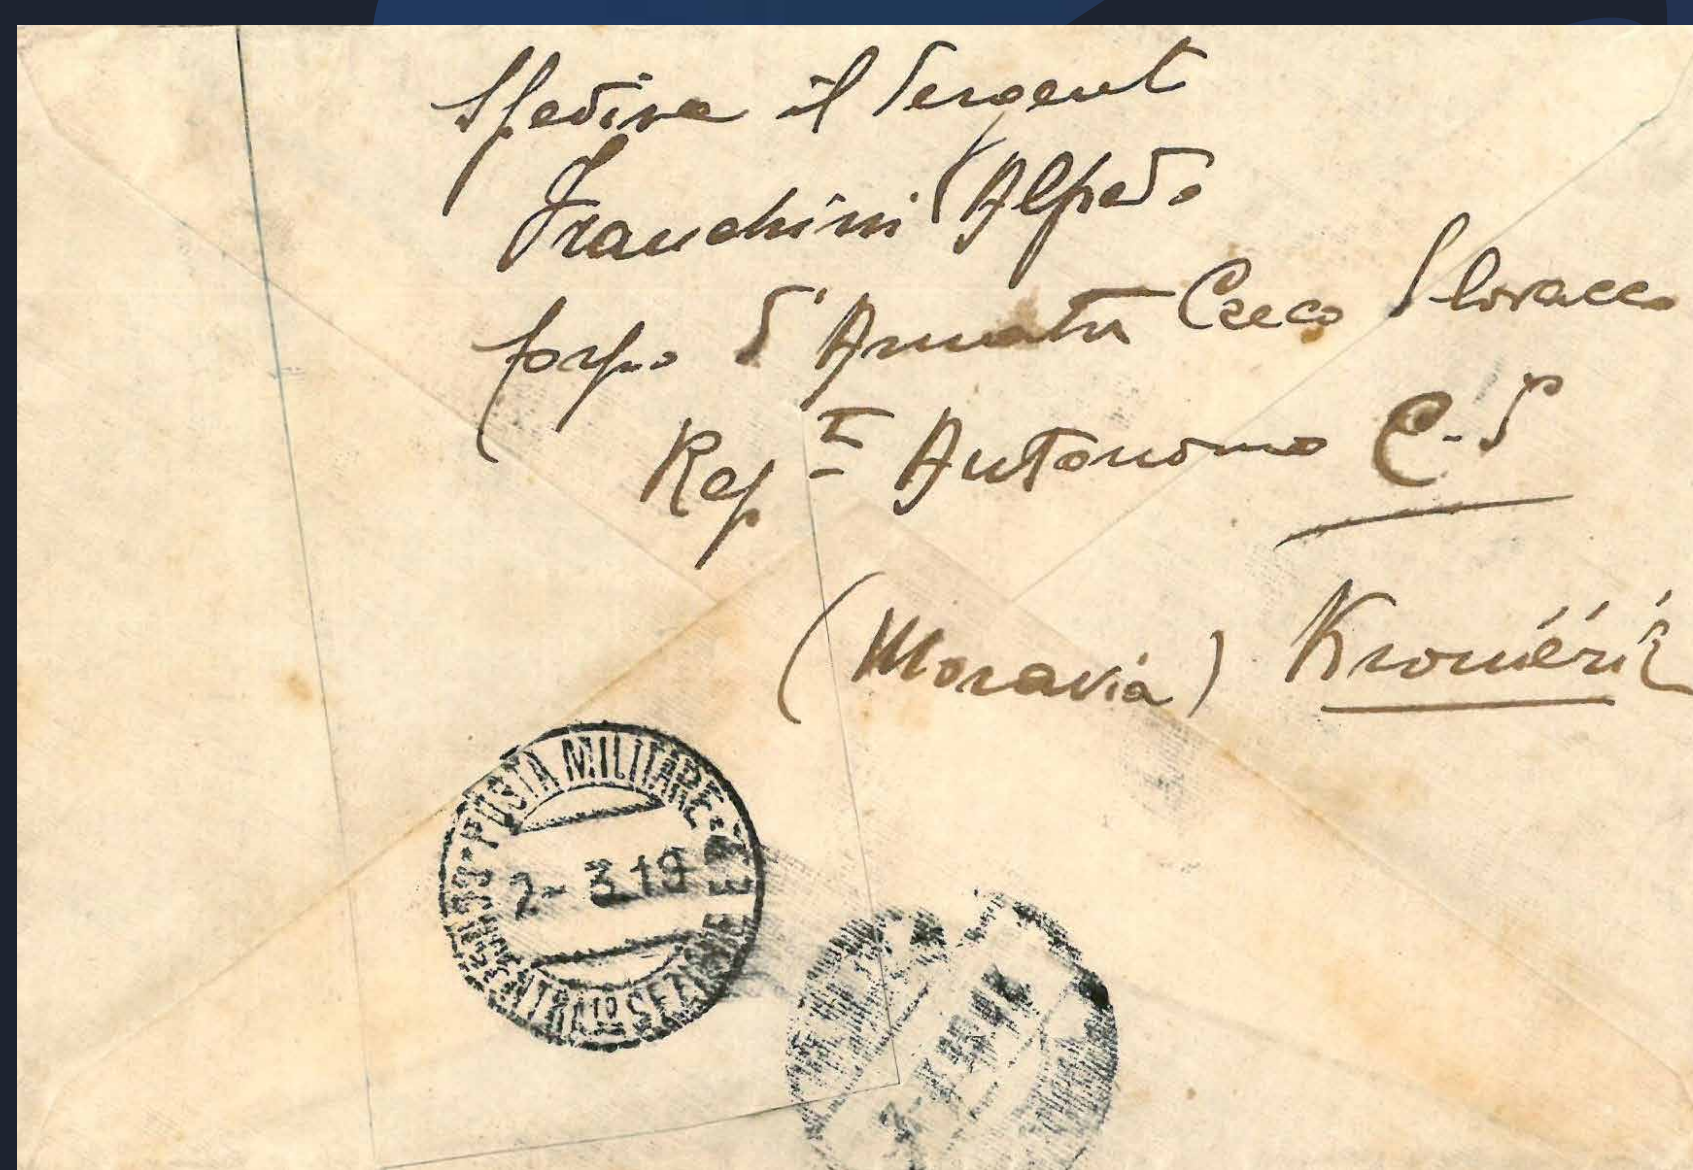 Spedisce il Sergent
Franchini Alfredo
Corpo d'Armata Ceco Slovacco
Rep I Autonomo C-S
(Moravia) Kroměříž
POSTA MILITARE
2-3 19
CONCENTRAto SEZIONE